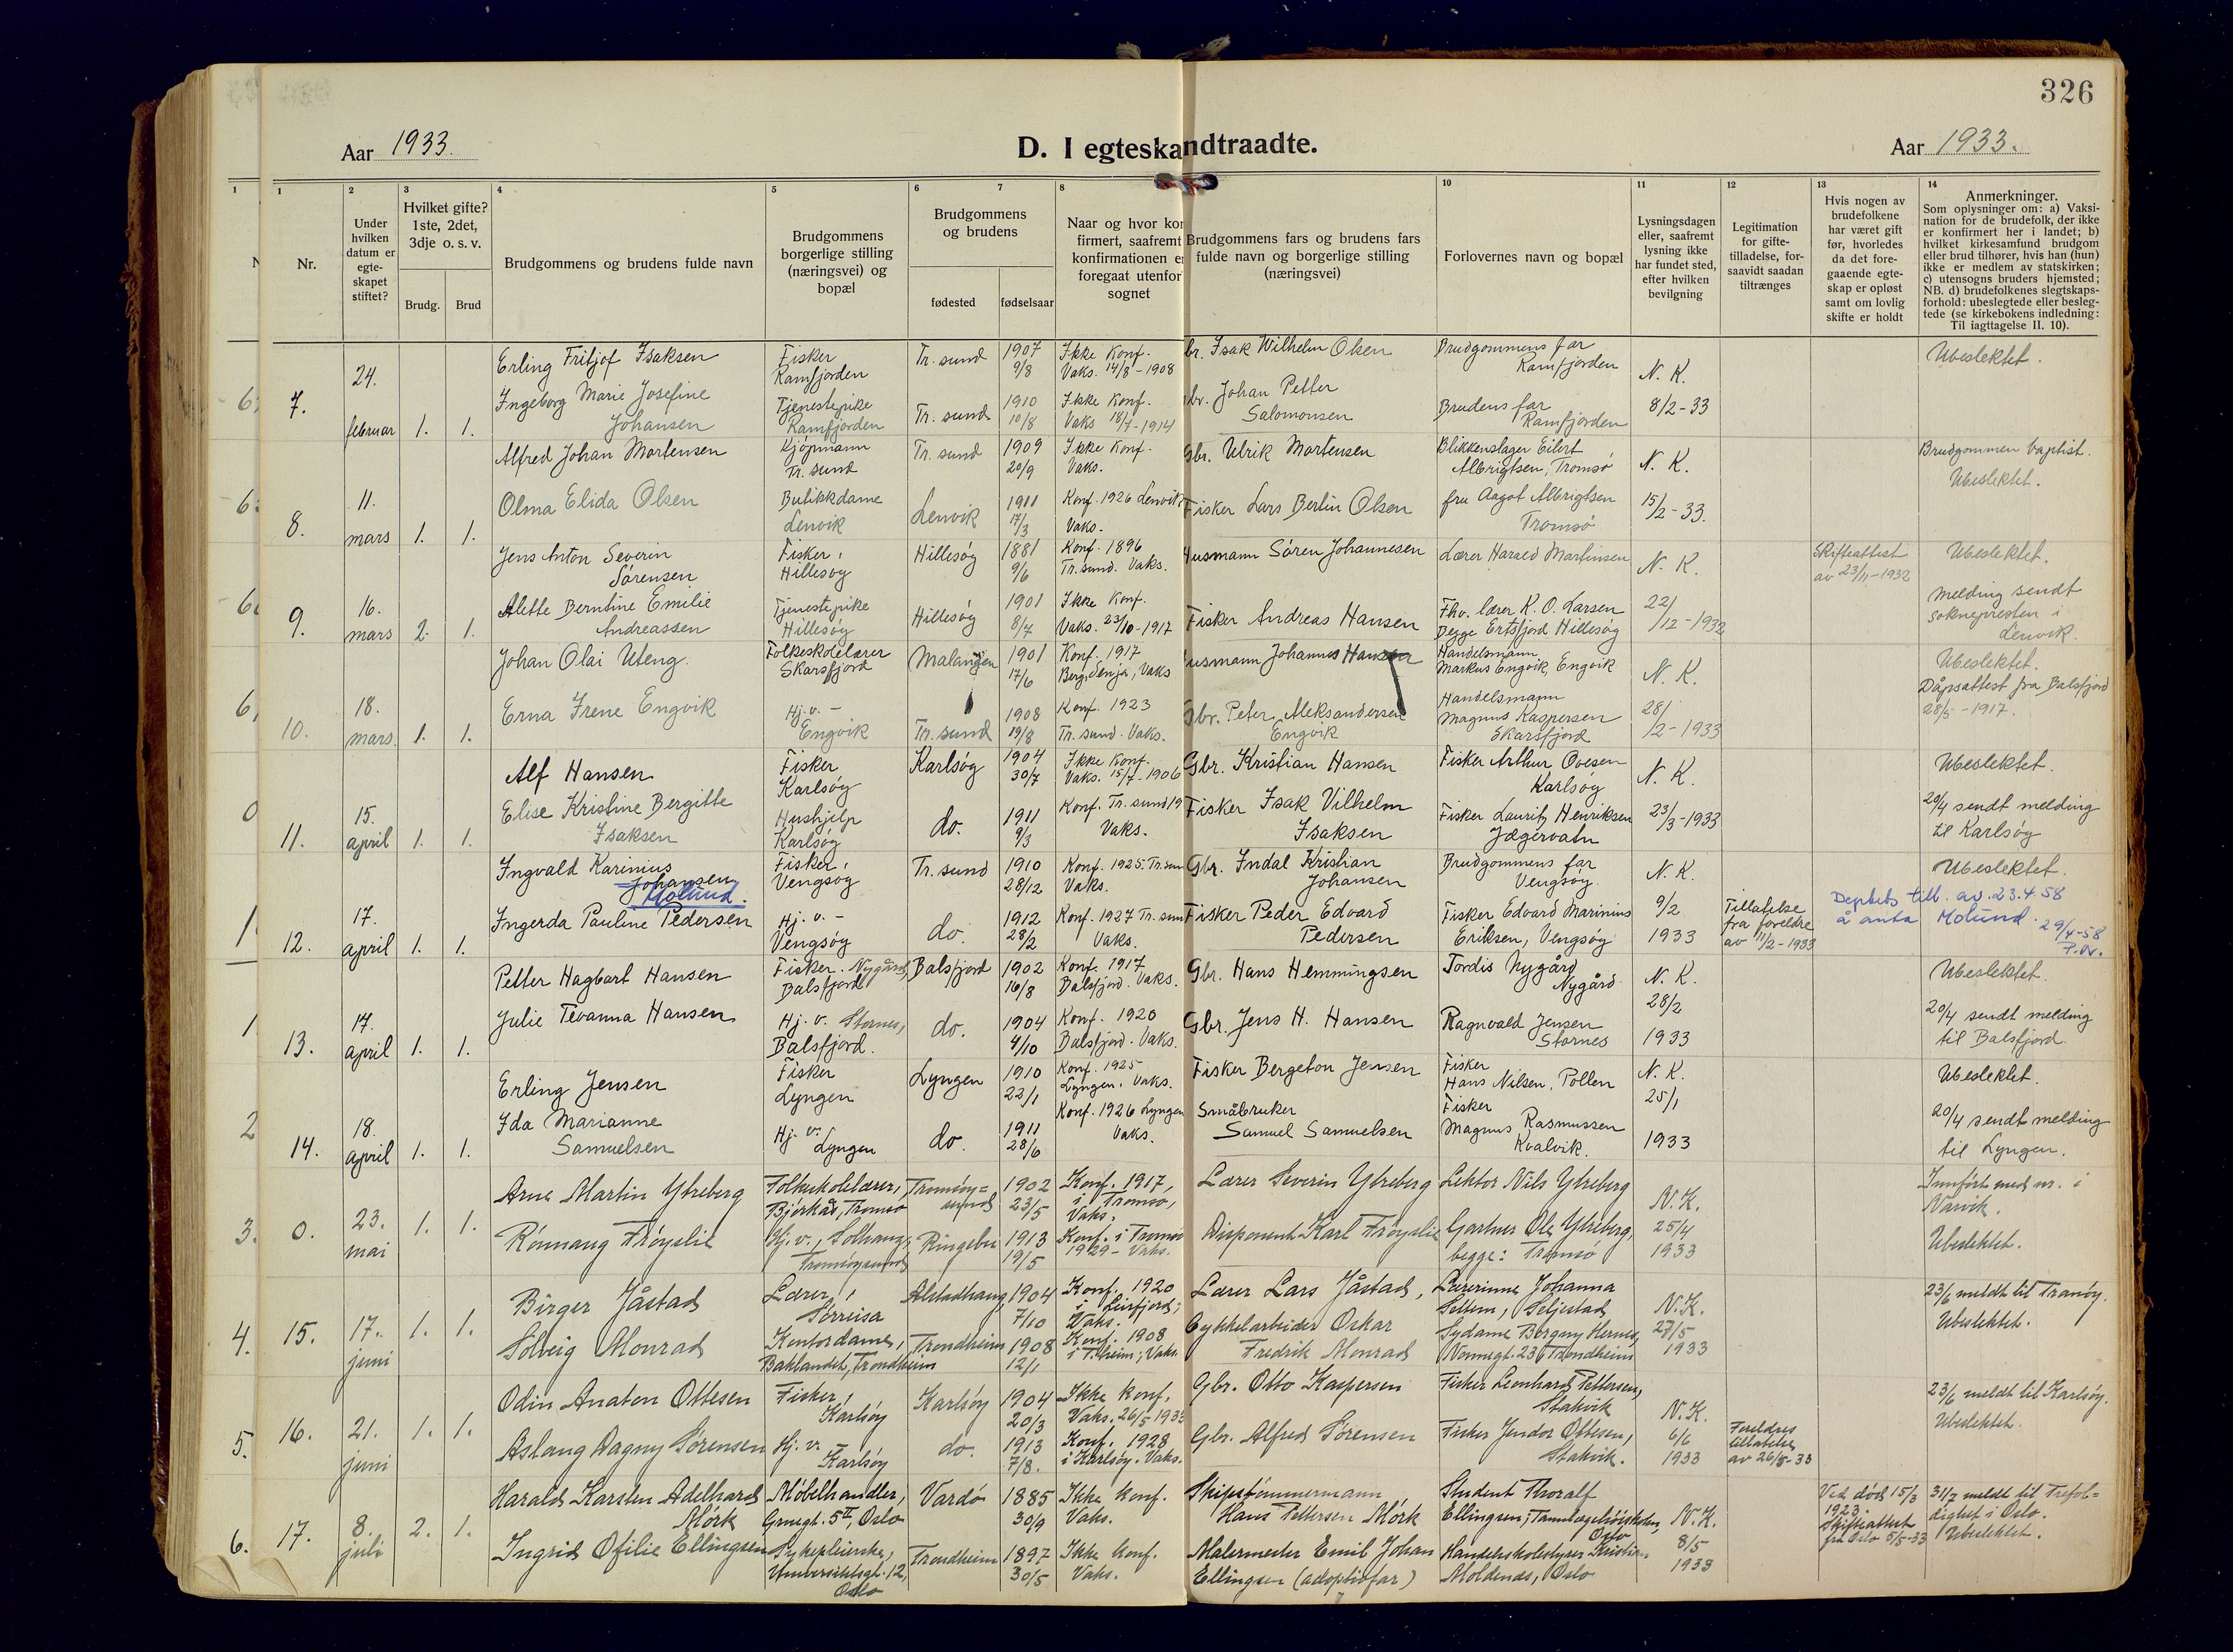 326
Aar 1933.
D. I egteskandtraadte.
Aar 1933.
1 1 2 3 4 5 6 7 8 10 11 12 13 14
Nr.
Under hvilken datum er egte-skapet stiftet?
Hvilket gifte? 1ste, 2det, 3dje o. s. v.
Brudg. Brud
Brudgommens og brudens fulde navn
Brudgommens borgerlige stilling (næringsvei) og bopæl
Brudgommens og brudens
fødested fødselsaar
Naar og hvor kon
firmert, saafremt
konfirmationen er
foregaat utenfor
sognet
Brudgommens fars og brudens fars
fulde navn og borgerlige stilling
(næringsvei)
Forlovernes navn og bopæl
Lysningsdagen
eller, saafremt
lysning ikke
har fundet sted,
efter hvilken
bevilgning
Legitimation
for gifte-
tilladelse, for-
saavidt saadan
tiltrænges
Hvis nogen av
brudefolkene
har været gift
før, hvorledes
da det fore-
gaaende egte-
skap er opløst
samt om lovlig
skifte er holdt
Anmerkninger.
Som oplysninger om: a) Vaksi-
nation for de brudefolk, der ikke
er konfirmert her i landet; b)
hvilket kirkesamfund brudgom
eller brud tilhører, hvis han (hun)
ikke er medlem av statskirken;
c) utensogns bruders hjemsted;
NB. d) brudefolkenes slegtskaps-
forhold: ubeslegtede eller besleg-
tede (se kirkebokens indledning:
Til iagttagelse II. 10).
7. 24. februar 1. 1.
Erling Fritjof Isaksen Fisker Ramfjorden Tr. sund 1907 9/8 Ikke Konf. Vaks. 14/8-1908 br. Isak Wilhelm Olsen Brudgommens far Ramfjorden N. K. Ubeslektet.
Ingeborg Marie Josefine Johansen Tjenestepike Ramfjorden Tr. sund 1910 10/8 Ikke Konf. Vaks 18/7-1914 br. Johan Petter Salomonsen Brudens far Ramfjorden 8/2-33
8. 11. mars 1. 1.
Alfred Johan Mortensen Kjøpmann Tr. sund Tr. sund 1909 20/9 Ikke Konf. Vaks. Gbr. Ulrik Mortensen Blikkenslager Eilert Albrigtsen, Tromsø N. K. Brudgommen baptist. Ubeslektet.
Olma Elida Olsen Butikkdame Lenvik Lenvik 1911 17/3 Konf. 1926 Lenvik Vaks. Fisker Lars Berlin Olsen fru Aagot Albrigtsen Tromsø 15/2-33.
9. 16. mars 2. 1.
Jens Anton Severin Sørensen Fisker, Hillesøy Hillesøy 1881 9/6 Konf. 1896 Tr. sund. Vaks. Husmann Søren Johannesen Lærer Harald Martinsen N. K. Skifteattest av 23/11-1932 Ubeslektet.
Alette Berntine Emilie Andreassen Tjenestepike Hillesøy Hillesøy 1901 8/7 Ikke Konf. Vaks. 23/10-1917 Fisker Andreas Hansen Fhv. lærer K. O. Larsen Begge Ertsfjord Hillesøy 22/12-1932 melding sendt soknepresten i Lenvik.
10. 18. mars. 1. 1.
Johan Olai Uteng. Folkeskolelærer Skarsfjord Malangen 1901 17/6 Konf. 1917 Berg, Senja, Vaks usmann Johannes Hansen Handelsmann Markus Engvik, Engvik N. K. Ubeslektet.
Erna Irene Engvik Hj. v. - Engvik Tr. sund 1908 19/8 Konf. 1923 Tr. sund. Vaks. Gbr. Peter Aleksandersen Engvik Handelsmann Magnus Kaspersen Skarsfjord 28/2-1933 Dåpsattest fra Balsfjord 28/5-1917.
11. 15. april 1. 1.
Alf Hansen Fisker Karlsøy Karlsøy 1904 30/7 Ikke Konf. Vaks. 15/7-1906 Gbr. Kristian Hansen Fisker Arthur Ovesen Karlsøy N. K. Ubeslektet.
Elise Kristine Bergitte Isaksen Hushjelp Karlsøy do. 1911 9/3 Konf. Tr. sund 19 Vaks. Fisker Isak Vilhelm Isaksen Fisker Lauritz Henriksen Jægervatn 23/3-1933 20/4 sendt melding til Karlsøy
12. 17. april 1. 1.
Ingvald Karinius Johansen Molund. Fisker, Vengsøy Tr. sund 1910 28/12 Konf. 1925. Tr. sun Vaks. Gbr. Indal Kristian Johansen Brudgommens far Vengsøy. N. K. Ubeslektet.
Deptets till. av. 23.4.58 å anta Molund. 29/4-58
Ingerda Pauline Pedersen Hj. v. - Vengsøy do. 1912 28/2 Konf. 1927 Tr. sun Vaks. Fisker Peder Edvard Pedersen Fisker Edvard Marinius Eriksen, Vengsøy 9/2 1933 Tillatelse fra foreldre av 11/2-1933
13. 17. april 1. 1.
Petter Hagbart Hansen Fisker. Nygård, Balsfjord Balsfjord 1902 16/8 Konf. 1917 Balsfjord. Vaks. Gbr. Hans Hemmingsen Tordis Nygård Nygård N. K. Ubeslektet.
Julie Tevanna Hansen Hj. v. Stornes, Balsfjord. do. 1904 4/10 Konf. 1920 Balsfjord. Vaks. Gbr. Jens H. Hansen Ragnvald Jensen Stornes 28/2 1933 20/4 sendt melding til Balsfjord.
14. 18. april 1. 1.
Erling Jensen Fisker Lyngen Lyngen 1910 22/1 Konf. 1925 Lyngen. Vaks. Fisker Bergeton Jensen Fisker Hans Nilsen, Pollen N. K. Ubeslektet.
Ida Marianne Samuelsen Hj. v. Lyngen do. 1911 28/6 Konf. 1926 Lyngen Vaks. Småbruker Samuel Samuelsen Fisker Magnus Rasmussen Kvalvik. 25/1 1933 20/4 sendt melding til Lyngen.
3. 0. 23. mai 1. 1.
Arne Martin Ytreberg Folkeskolelærer, Bjørkås, Tromsø Tromsøysund 1902 23/5 Konf. 1917, i Tromsø, Vaks. Lærer Severin Ytreberg Lektor Nils Ytreberg N. K. Innført med nr. i Narvik.
Rønnaug Frøyslie Hj. v., Solhaug, Tromsøysund Ringebu 1913 19/5 Konf. i Tromsø 1929 - Vaks. Disponent Karl Frøyslie Gartner Ole Ytreberg, begge: Tromsø 25/4 1933 Ubeslektet.
4. 15. 17. juni 1. 1.
Birger Jåstad Lærer, Sørreisa Alstadhaug 1904 7/10 Konf. 1920 i Leirfjord; Vaks. Lærer Lars Jåstad, Lærerinne Johanna Settem, Seljestad N. K. 23/6 meldt til Tranøy. Ubeslektet.
Solveig Monrad Kontordame, Baklandet, Trondheim Trondheim 1908 12/1 Konf. 1908 i T.heim; Vaks Cykkelarbeider Oskar Fredrik Monrad Sydame Borgny Hernes, Nonnegt. 23 Trondheim 27/5 1933
5. 16. 21. juni 1. 1.
Odin Anaton Ottesen Fisker, Karlsøy Karlsøy 1904 20/3 Ikke konf. Vaks. 26/5 1933 Gbr. Otto Kaspersen Fisker Leonhard Pettersen, Stakvik N. K. 23/6 meldt til Karlsøy. Ubeslektet.
Aslaug Dagny Sørensen Hj. v. Karlsøy do. 1913 7/8. Konf. 1928 i Karlsøy. Vaks. Gbr. Alfred Sørensen Fisker Jendor Ottesen, Stakvik. 6/6 1933 Foreldres tillatelse av 26/5-33
6. 17. 8. juli 2. 1.
Harald Karsten Adelhard Mørk Møbelhandler, Oslo Vardø 1885 30/9 Ikke konf. Vaks. Skipstømmermann Hans Pettersen Mørk Student Thoralf Ellingsen, Tannlægehøiskolen, Oslo N. K. Ved død 15/3 1923. Skifteattest fra Oslo 5/5-33 31/7 meldt til Trefoldighet i Oslo. Ubeslektet.
Ingrid Ofilie Ellingsen Sykepleierske, Universitetsgt. 12, Oslo Trondheim 1897 30/5 Ikke konf. Vaks. Malermester Emil Johan Ellingsen (adoptivfar) Handelsskolestyrer Kristian Moldenes, Oslo 8/5 1933